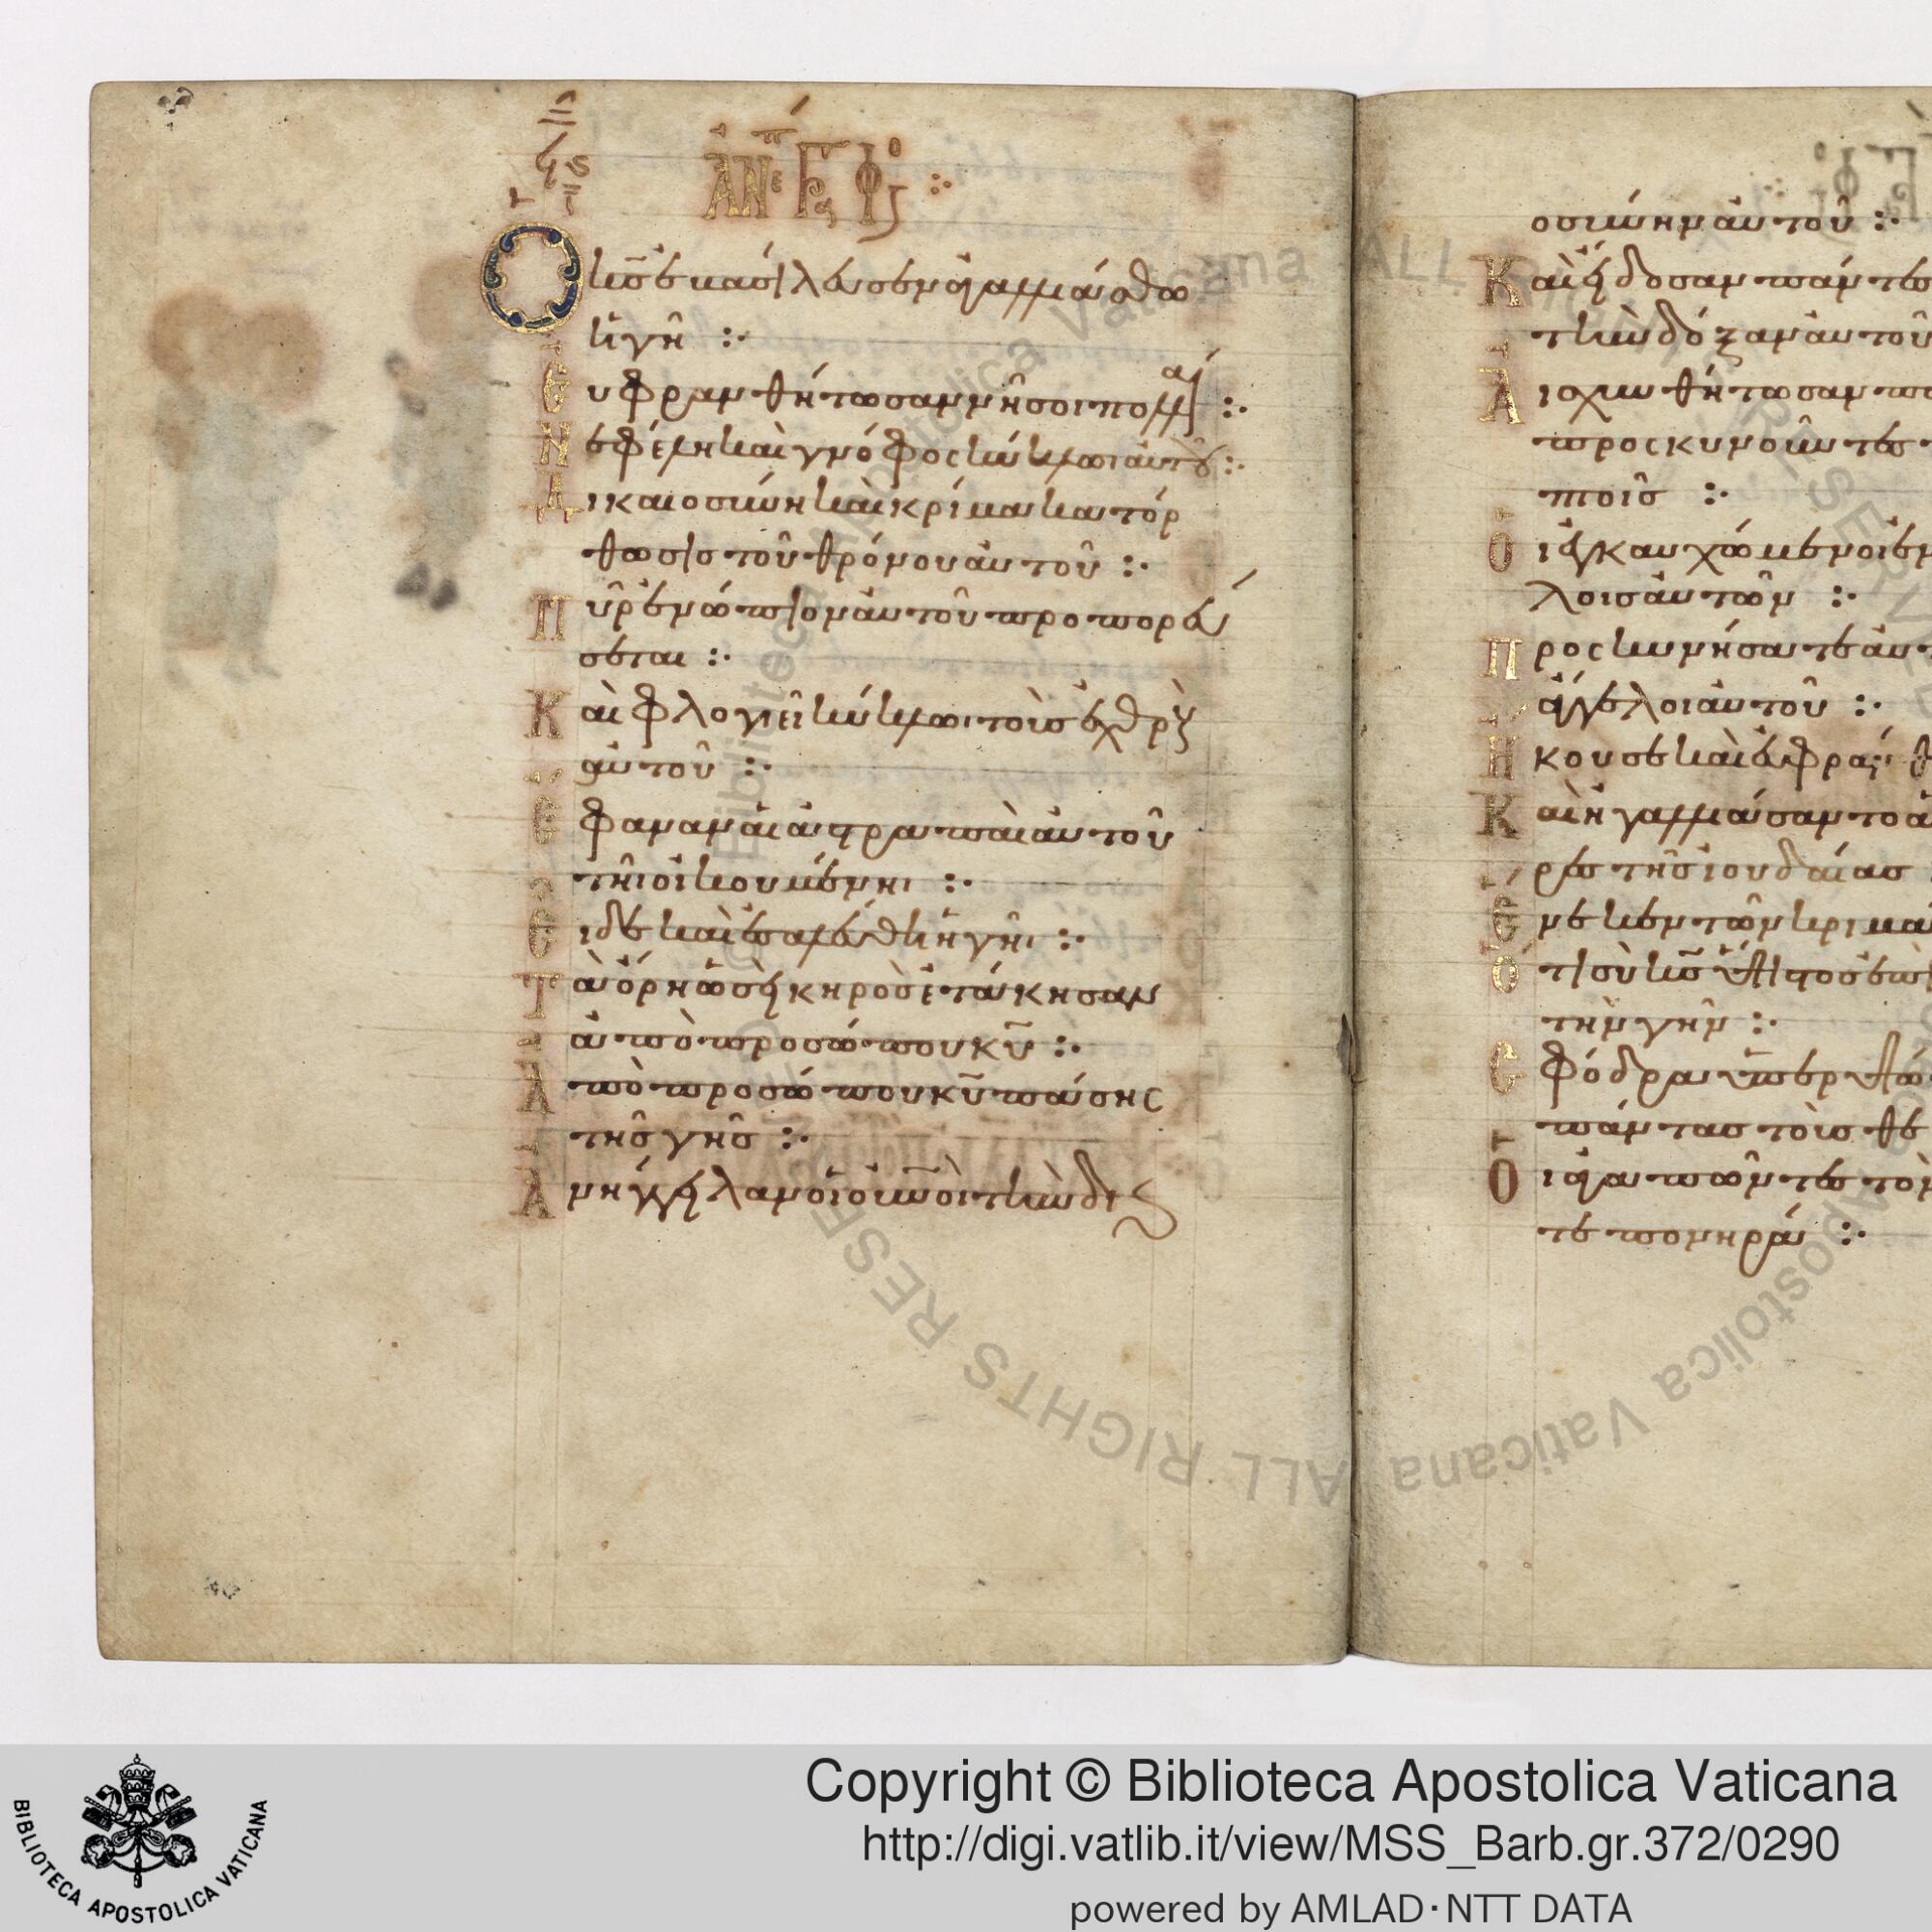 Ϟϛ
Ὁ κ̅ς̅ ἐβασίλευσεν ἀγαλλιάσθω
ἡ γῆ :·
Εὐφρανθήτωσαν νῆσοι πολλαί :·
Νεφέλη καὶ γνόφος κύκλωι αὐτοῦ :·
Δικαιοσύνη καὶ κρίμα κατόρ
θωσις τοῦ θρόνου αὐτοῦ :·
Πῦρ ἐνώπιον αὐτοῦ προπορεύ
σεται :·
Καὶ φλογιεῖ κύκλωι τοὺς ἐχθροὺς
αὐτοῦ :·
Ἔφαναν αἱ ἀστραπαὶ αὐτοῦ
τῆι οἰκουμένηι :·
Εἶδε καὶ ἐσαλεύθη ἡ γῆ :·
Τὰ ὄρη ὡσεὶ κηρὸς ἐτάκησαν
ἀπὸ προσώπου κ̅υ̅ :·
Ἀπὸ προσώπου κ̅υ̅ πάσης
τῆς γῆς :·
Ἀνήγγειλαν οἱ οὐ̅νοὶ τὴν δι
οσύνην αὐτοῦ :·
Καὶ εἴδοσαν πάντες
τὴν δόξαν αὐτοῦ
Αἰσχυνθήτωσαν
προσκυνοῦντες
πτοῖς :·
Οἱ ἐγκαυχώμενοι ἐν
λοις αὐτῶν :·
Προσκυνήσατε αὐτ
ἄγγελοι αὐτοῦ :·
Ἤκουσε καὶ εὐφράνθ
Καὶ ἠγαλλιάσαντο α
ρες τῆς ἰουδαίας
Ἕνεκεν τῶν κριμά
Ὅτι σὺ κ̅ς̅ ὕψιστος ἐπι
τὴν γῆν :·
Σφόδρα ὑπερυψώ
πάντας τοὺς θε
Οἱ ἀγαπῶντες τὸν
τε πονηρά :·
Copyright © Biblioteca Apostolica Vaticana
http://digi.vatlib.it/view/MSS_Barb.gr.372/0290
powered by AMLAD·NTT DATA
BIBLIOTECA APOSTOLICA VATICANA